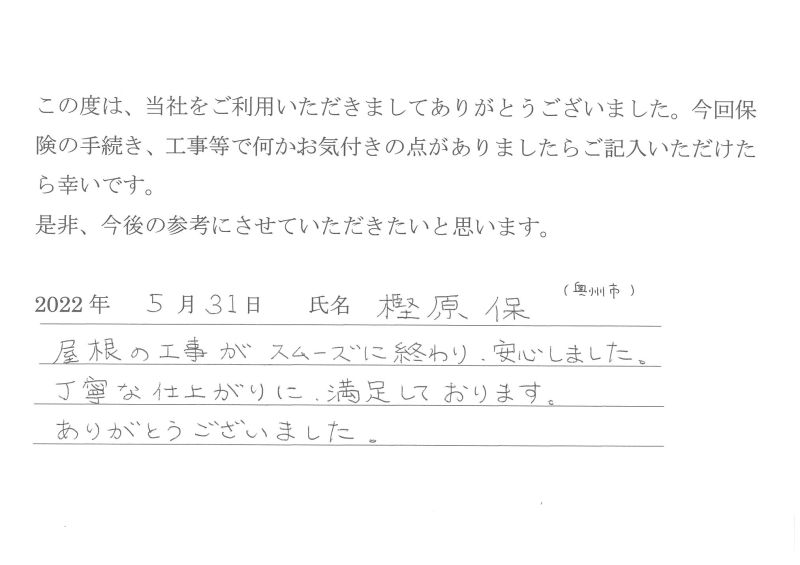 この度は、当社をご利用いただきましてありがとうございました。今回保
険の手続き、工事等で何かお気付きの点がありましたらご記入いただけた
ら幸いです。
是非、今後の参考にさせていただきたいと思います。
(奥州市)
2022年 5月31日 氏名 樫原 保
屋根の工事がスムーズに終わり、安心しました。
丁寧な仕上がりに、満足しております。
ありがとうございました。